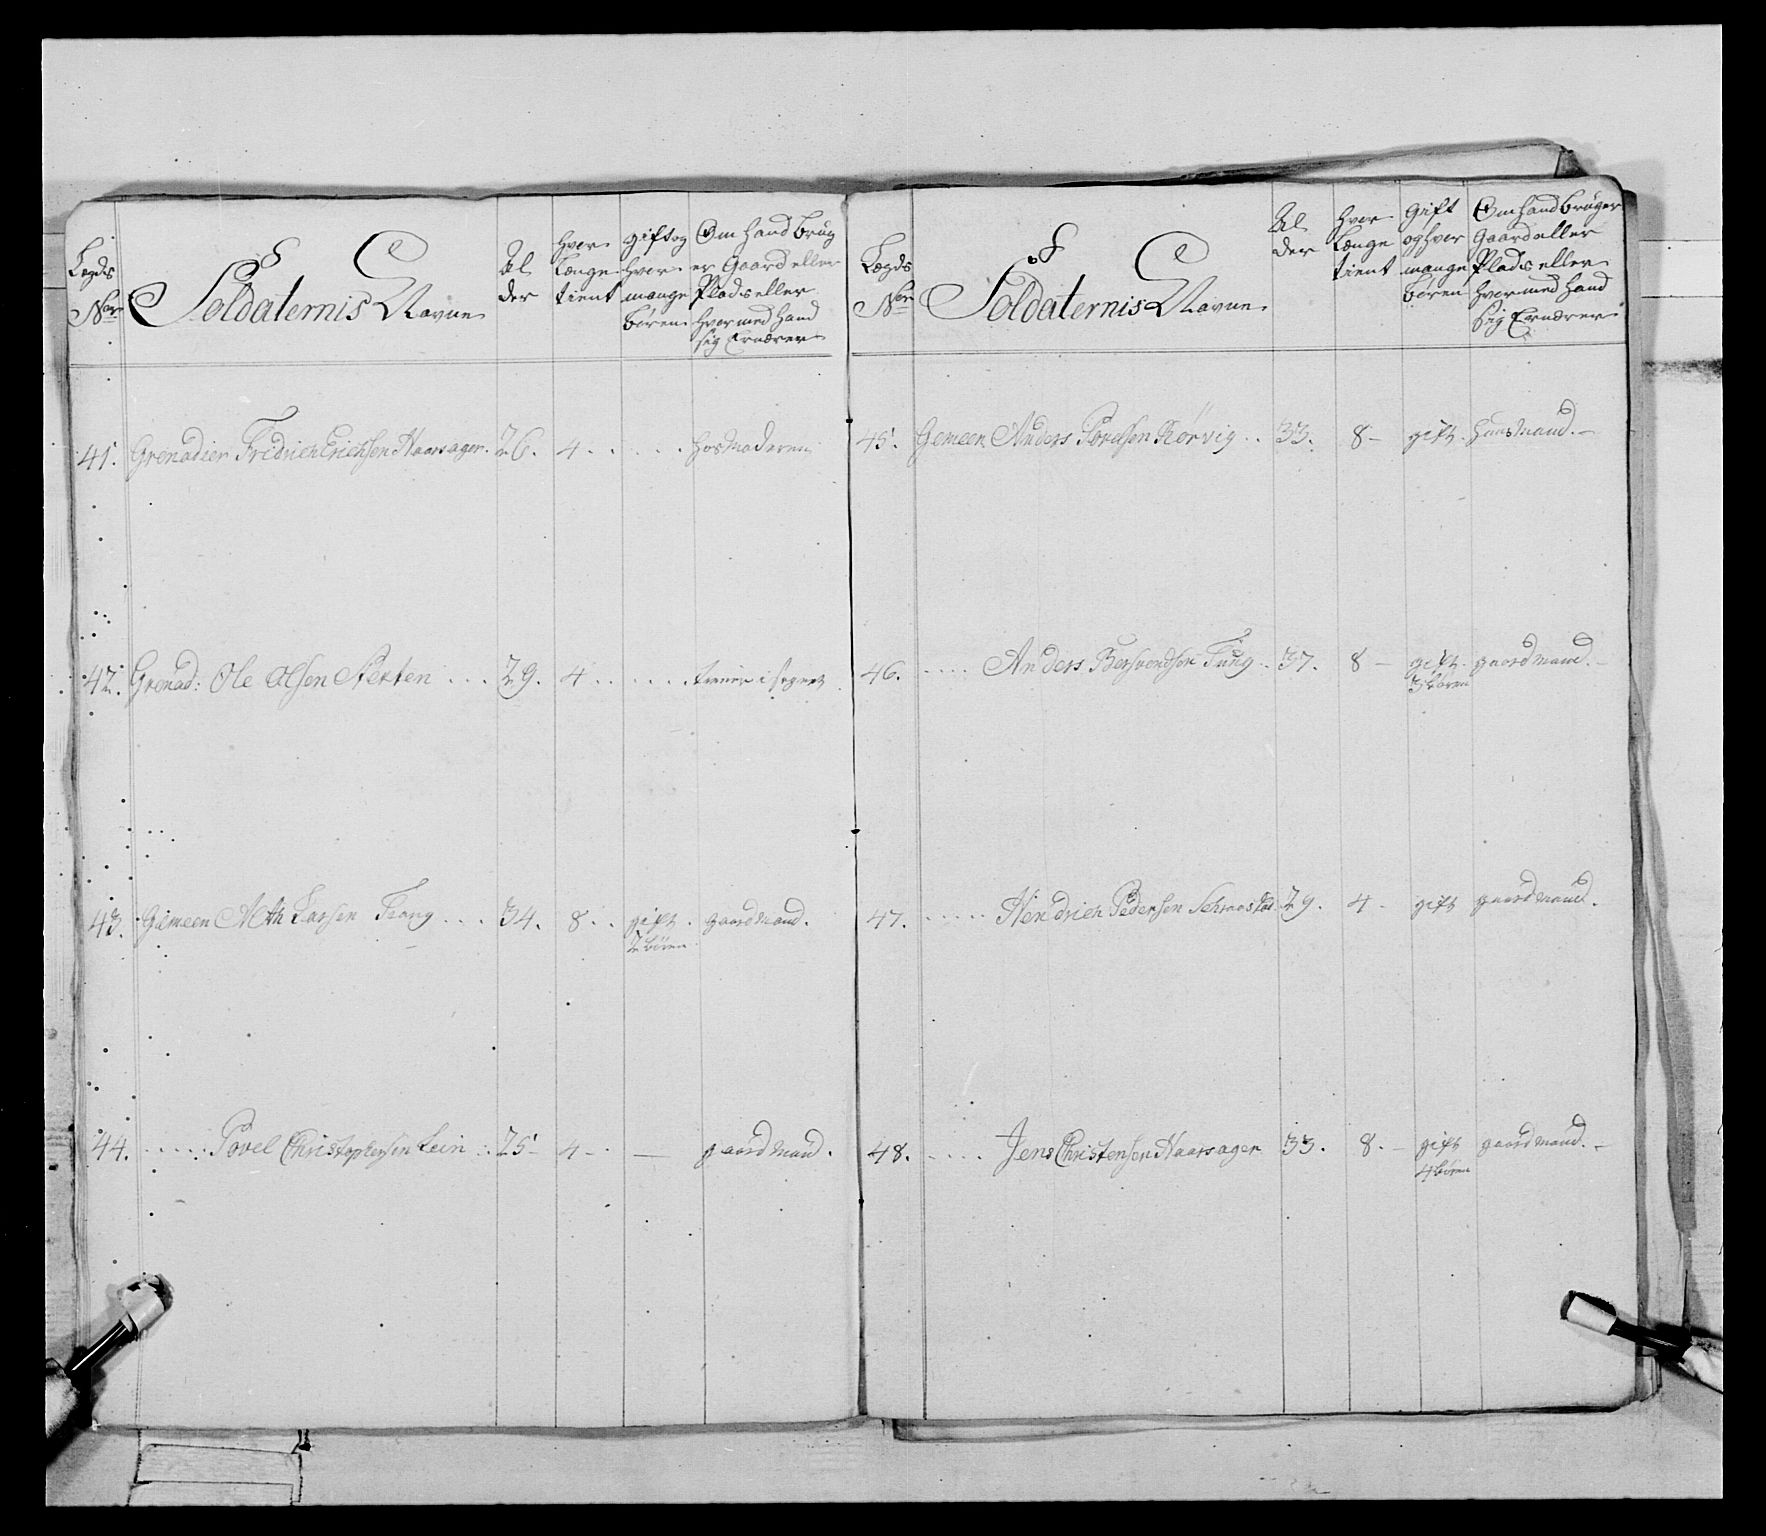 Legds
No
Soldaternis Navne
Al
der
hvor
Længe
tient
gift og
hvor
mange
børen
Om hand brug
er Gaard eller
Plads eller
hvormed hand
sig Ernærer
41. Grenadier Fridrich Erichsen Haarsager. 26. 4 . . . . . . hos Moderen
42. Grenad: Ole Olsen . . . 29. 4 . . . . . . tiener i sognet
43. Gemeen Larsen . . . 34. 8 . . gift . gaardmand.
2 børen
44. . . . . . Povel Christophersen Lein . . 25 - 4 - . — gaardmand.
Legds
No
Soldaternis Navne
Al
der
hvor
Længe
tient
Gift
og hvor
mange
børen
Om hand bruger
Gaard eller
Plads eller
hvormed hand
sig Ernærer
45. Gemeen Anders Rørvig . . 33. 8 - gift. huusmand. -
46. . . . . . Anders Bersvendsen . . 37. 8 - gift. gaardmand. -
3 børen
47. . . . . . Hendrich Pedersen 29. 4 - gift gaardmand.
48. . . . . Jens Christensen Haarsager 33. 8. - gift gaardmand. -
4 børen